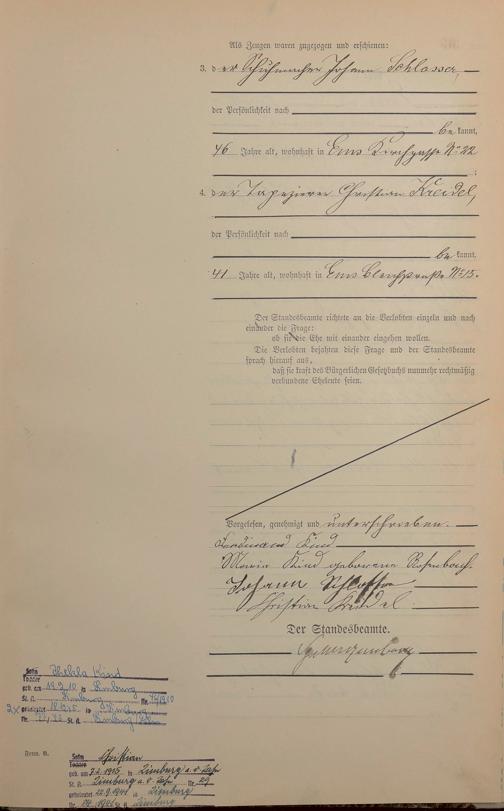 Als Zeugen waren zugezogen und erschienen:
3. der Schuhmacher Johann Schlosser,
der Persönlichkeit nach
bekannt,
46 Jahre alt, wohnhaft in Ems Kirchgasse No 22
;
4. der Tapezierer Christian Kreidel,
der Persönlichkeit nach
bekannt,
41 Jahre alt, wohnhaft in Ems Bleichstraße No 15.
Der Standesbeamte richtete an die Verlobten einzeln und nach
einander die Frage:
ob sie die Ehe mit einander eingehen wollen.
Die Verlobten bejahten diese Frage und der Standesbeamte
sprach hierauf aus,
daß sie kraft des Bürgerlichen Gesetzbuchs nunmehr rechtmäßig
verbundene Eheleute seien.
Vorgelesen, genehmigt und unterschrieben.
Ferdinand Kind
Maria Kind geborene Rosenbach.
Johann Schlosser
Christian Kreidel.
Der Standesbeamte.
Sohn Thekla Kind
Tochter
geb. am 18.2.10 in Limburg
St. A. Limburg Nr.
in Limburg
Nr. St. A. Limburg
Form. B.
Sohn Christian
Tochter
geb. am 7.2.1915 in Limburg a. d. Lahn
St. A. Limburg a. d. Lahn Nr. 29
geheiratet 12.9.1941 in Limburg
Limburg